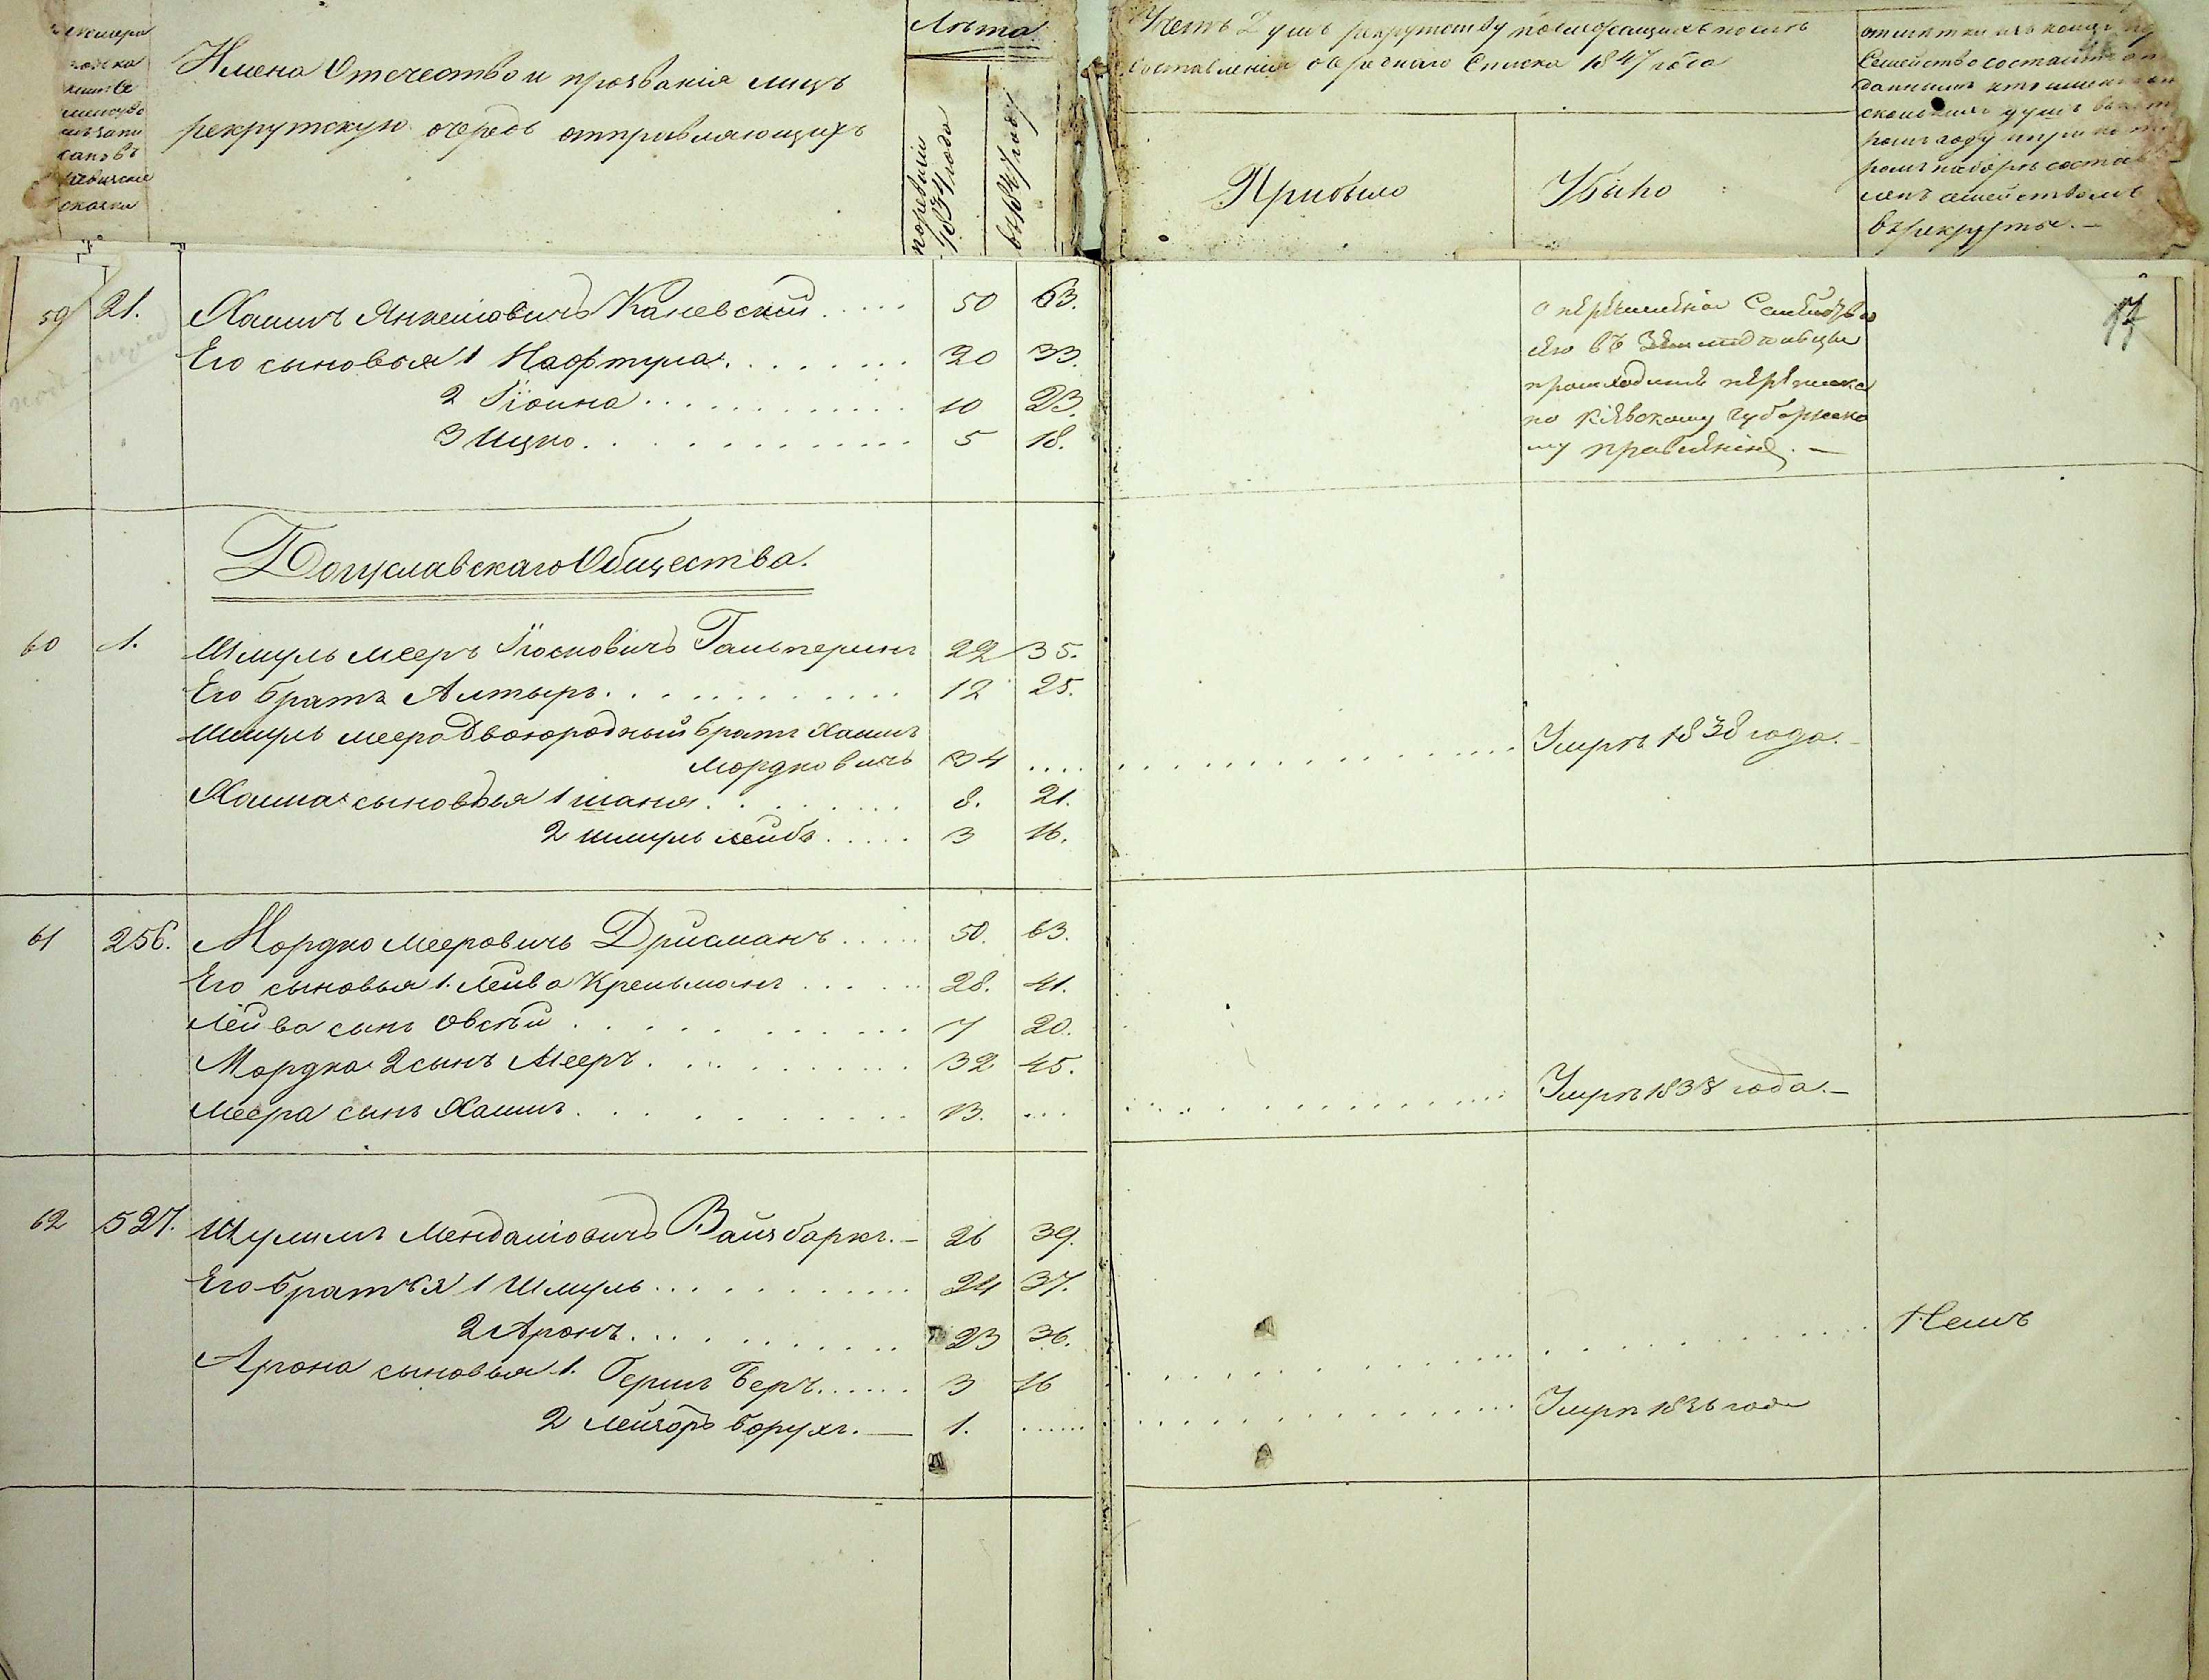 Имена Отечество и прозванія лицъ
рекрутскую очередь отправляющихъ
Лѣта
поревизіи
1834 года
въ 1847 году
Счетъ Душъ рекрутству послѣ
составленія очереднаго Списка 1847 года
Прибыло
Убыло
Семейство состоитъ
в рекруты.—
59 21. Хаимъ Янкелiовичъ Каневскій..... 50 63.
Его сыновья 1 Нафтула........ 20 33.
2 Гіоина............ 10 23.
3 Ицко.............. 5 18.
о перечисленіи Семейства
его въ Земледѣльцы
производится переписка
по Кіевскому Губернско
му правленію.—
17
Богуславскаго Общества.
60 1. Шмуль Мееръ Іосковичъ Гальперинъ 22 35.
Его братъ Алтыръ........... 12 25.
Шмуль Меера Двоюродный братъ Хаимъ
Мордковичъ 34 .... Умръ 1838 года.—
Хаима сыновья 1 шаня......... 8. 21.
2 шмуль лейбъ..... 3 16.
61 256. Мордко Мееровичъ Дрисманъ..... 50. 63.
Его сыновья 1. Лейва Крельманъ...... 28. 41.
Лейва сынъ Овсѣй............ 7 20.
Мордка 2 сынъ Мееръ.......... 32 45.
Меера сынъ Хаимъ........... 13. .... Умръ 1838 года.—
62 527. Шулимъ Мендалiовичъ Вайзбаркъ.— 26 39.
Его братья 1 Шмуль........... 24 37.
2 Аронъ......... 23 36.
Нетъ
Арона сыновья 1. Гершъ Беръ...... 3 16
2 Лейзоръ Борухъ.— 1. ...... Умръ 1836 года